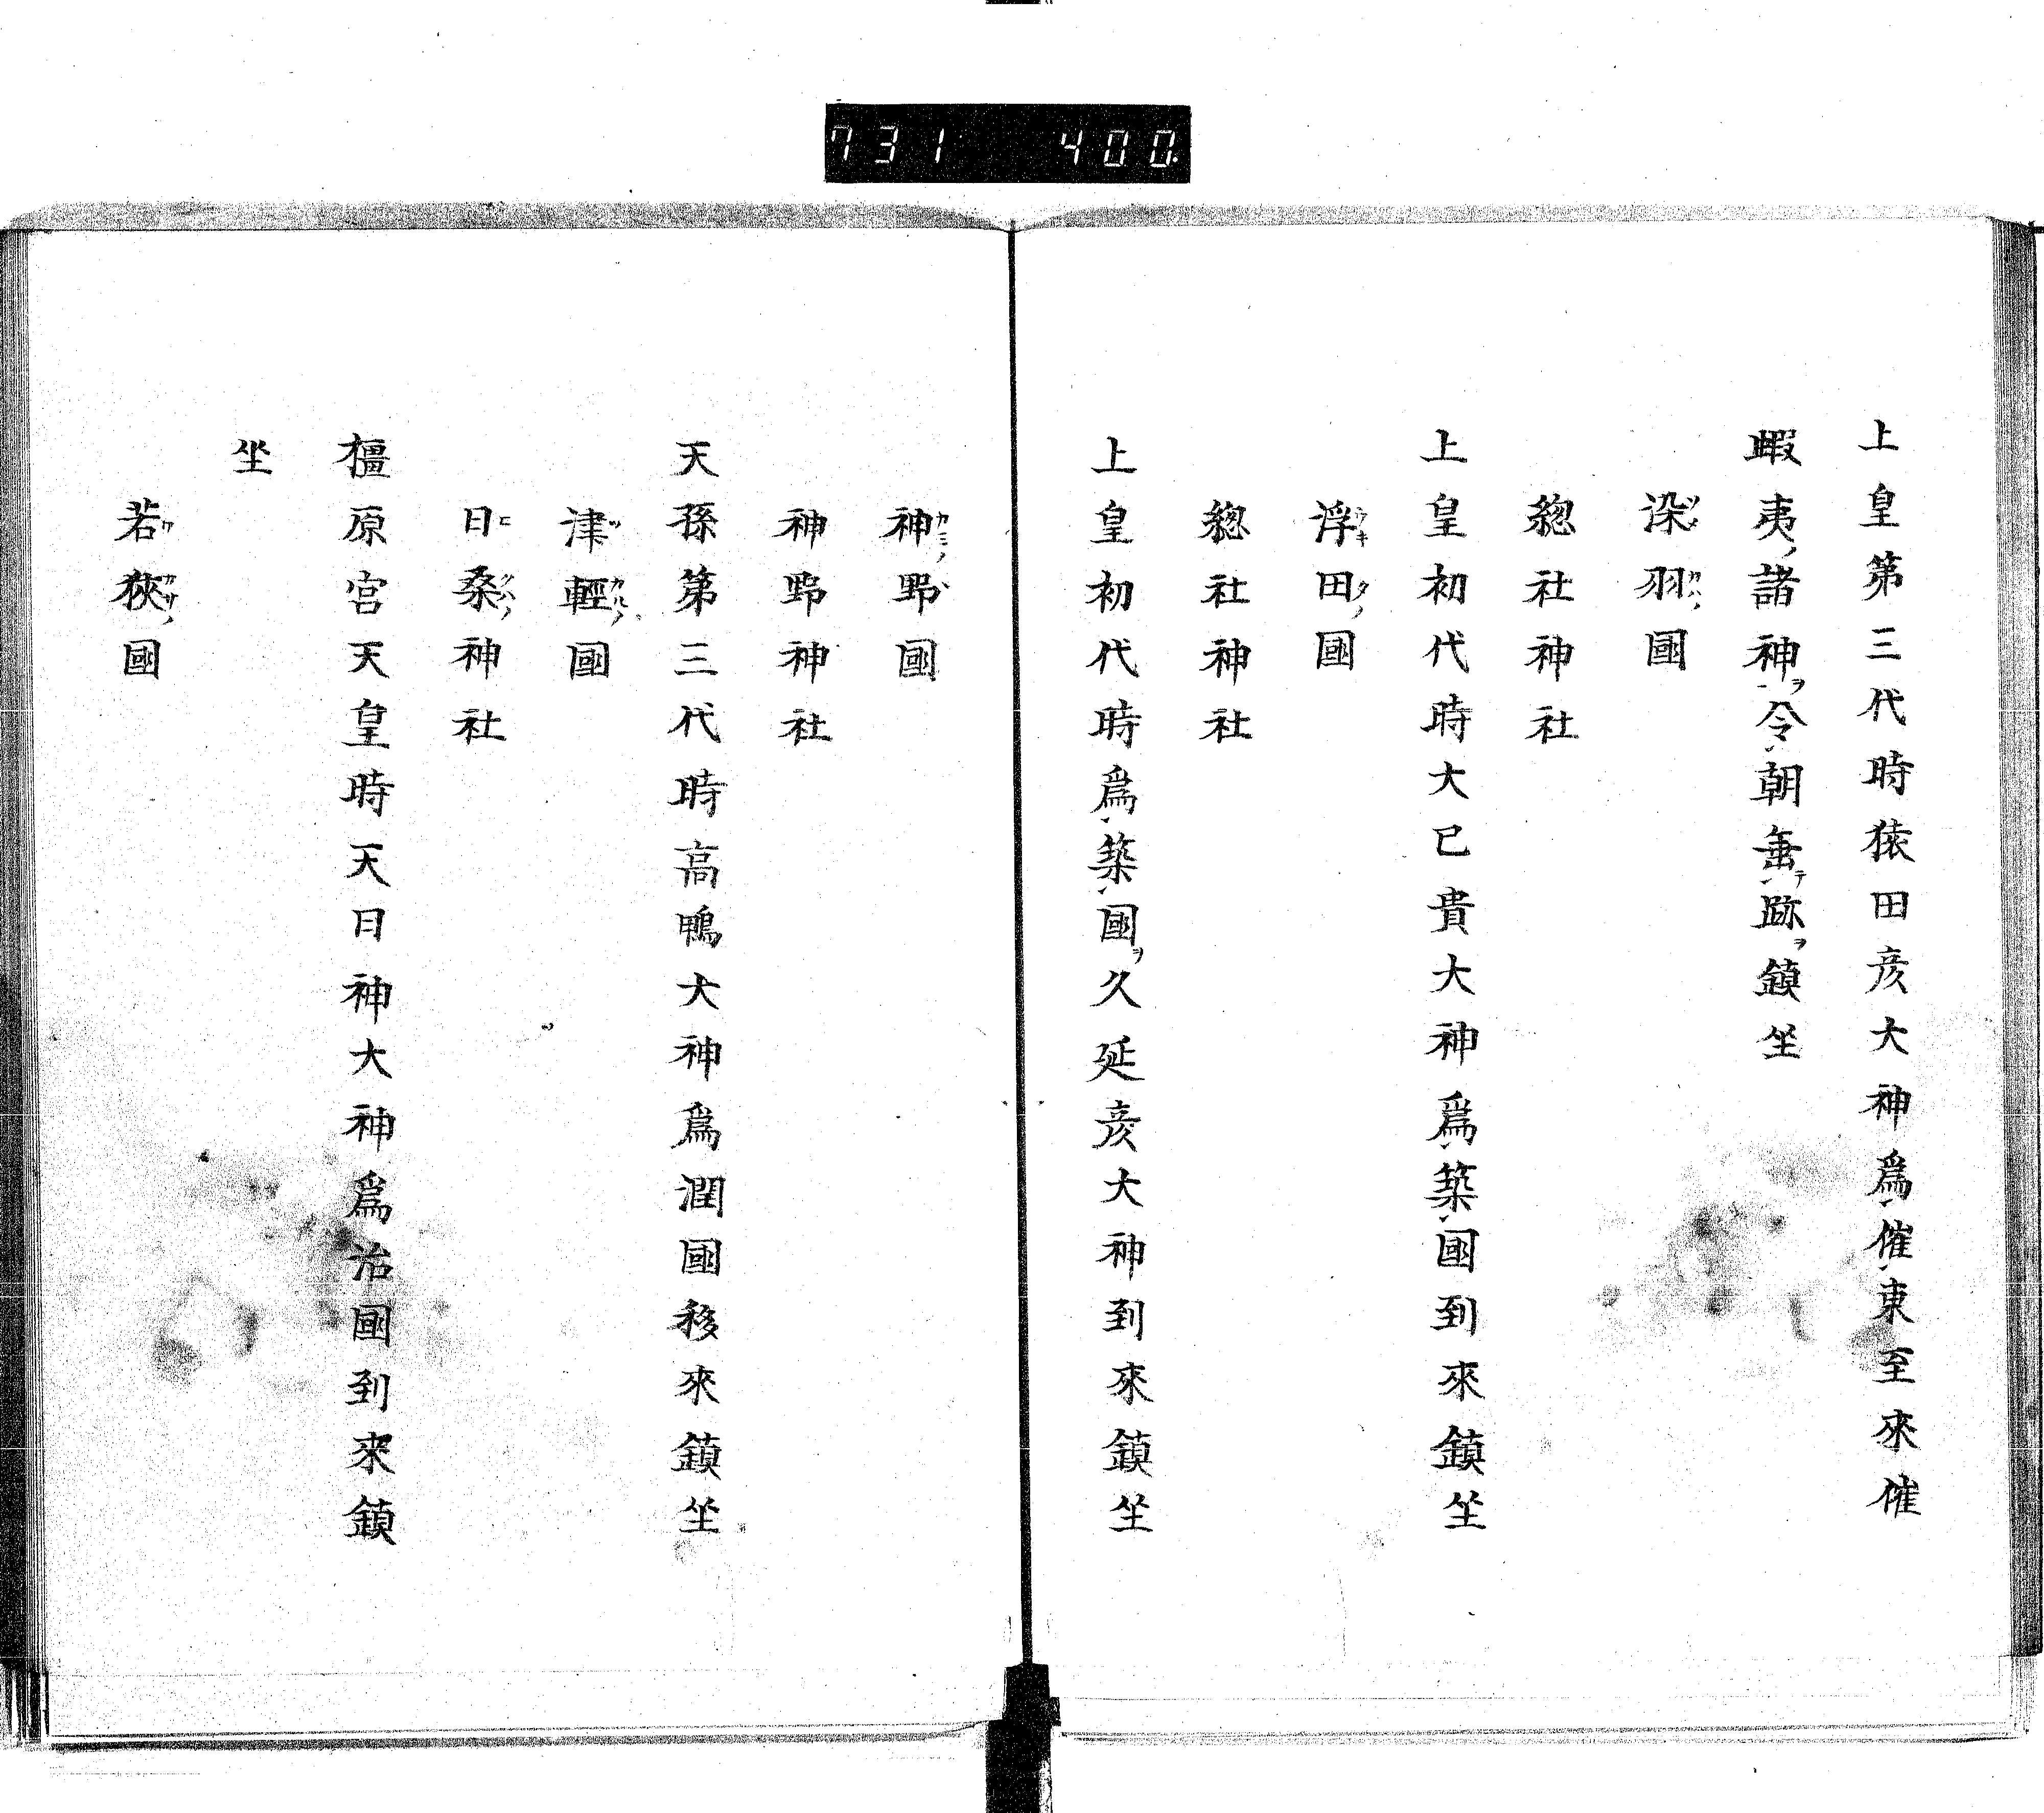 731 400
上皇第三代時猿田彦大神爲催東至來催
蝦夷ノ諸神ヲ令朝垂テ跡ヲ鎮坐
染羽國
總社神社
上皇初代時大已貴大神爲築國到來鎮坐
浮田國
總社神社
上皇初代時爲築國ヲ久延彦大神到來鎮坐
神野國
神野神社
天孫第三代時高鴨大神爲潤國移來鎮坐
津輕國
日桑神社
橿原宮天皇時天日神大神爲治國到來鎮
坐
若狹國